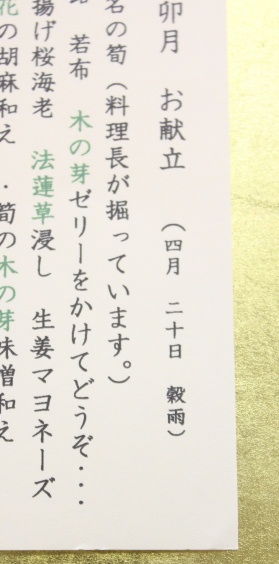 卯月 お献立 (四月 二十日 穀雨)
名の筍(料理長が掘っています。)
若布 木の芽ゼリーをかけてどうぞ・・・
揚げ桜海老 法蓮草浸し 生姜マヨネーズ
花の胡麻和え ・筍の木の芽味噌和え